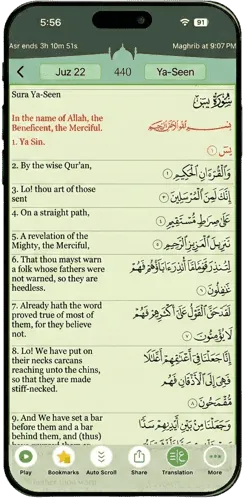 5:56
91
Asr ends 3h 10m 51s
Maghrib at 9:07 PM
Juz 22
440
Ya-Seen
Sura Ya-Seen
سُورَةُ يسٓ
In the name of Allah, the
Beneficent, the Merciful.
بِسْمِ اللَّهِ الرَّحْمَٰنِ الرَّحِيمِ
1. Ya Sin.
يسٓ ۝١
2. By the wise Qur'an,
وَالْقُرْءَانِ الْحَكِيمِ ۝٢
3. Lo! thou art of those
sent
إِنَّكَ لَمِنَ الْمُرْسَلِينَ ۝٣
4. On a straight path,
عَلَىٰ صِرَاطٍ مُّسْتَقِيمٍ ۝٤
5. A revelation of the
Mighty, the Merciful,
تَنزِيلَ الْعَزِيزِ الرَّحِيمِ ۝٥
6. That thou mayst warn
a folk whose fathers were
not warned, so they are
heedless.
لِتُنذِرَ قَوْمًا مَّا أُنذِرَ ءَابَاؤُهُمْ فَهُمْ
غَافِلُونَ ۝٦
7. Already hath the word
proved true of most of
them, for they believe
not.
لَقَدْ حَقَّ الْقَوْلُ عَلَىٰ أَكْثَرِهِمْ فَهُمْ
لَا يُؤْمِنُونَ ۝٧
8. Lo! We have put on
their necks carcans
reaching unto the chins,
so that they are made
stiff-necked.
إِنَّا جَعَلْنَا فِي أَعْنَاقِهِمْ أَغْلَالًا
فَهِيَ إِلَى الْأَذْقَانِ فَهُم
مُّقْمَحُونَ ۝٨
9. And We have set a bar
before them and a bar
behind them, and (thus)
وَجَعَلْنَا مِن بَيْنِ أَيْدِيهِمْ سَدًّا
Play
Bookmarks
Auto Scroll
Share
Translation
More